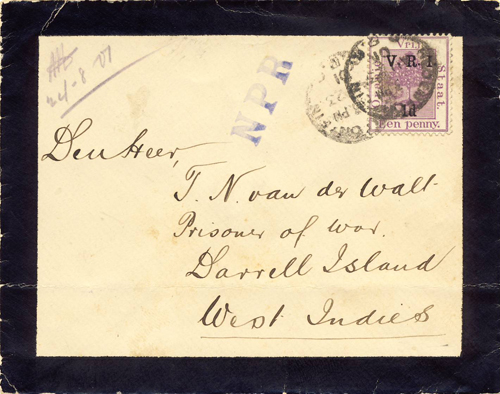 24-8 01
NPR
Vrij
V.R.I.
Staat.
1d
Een penny.
Den Heer,
T. N. van der Walt
Prisoner of war.
Darrell Island
West Indies